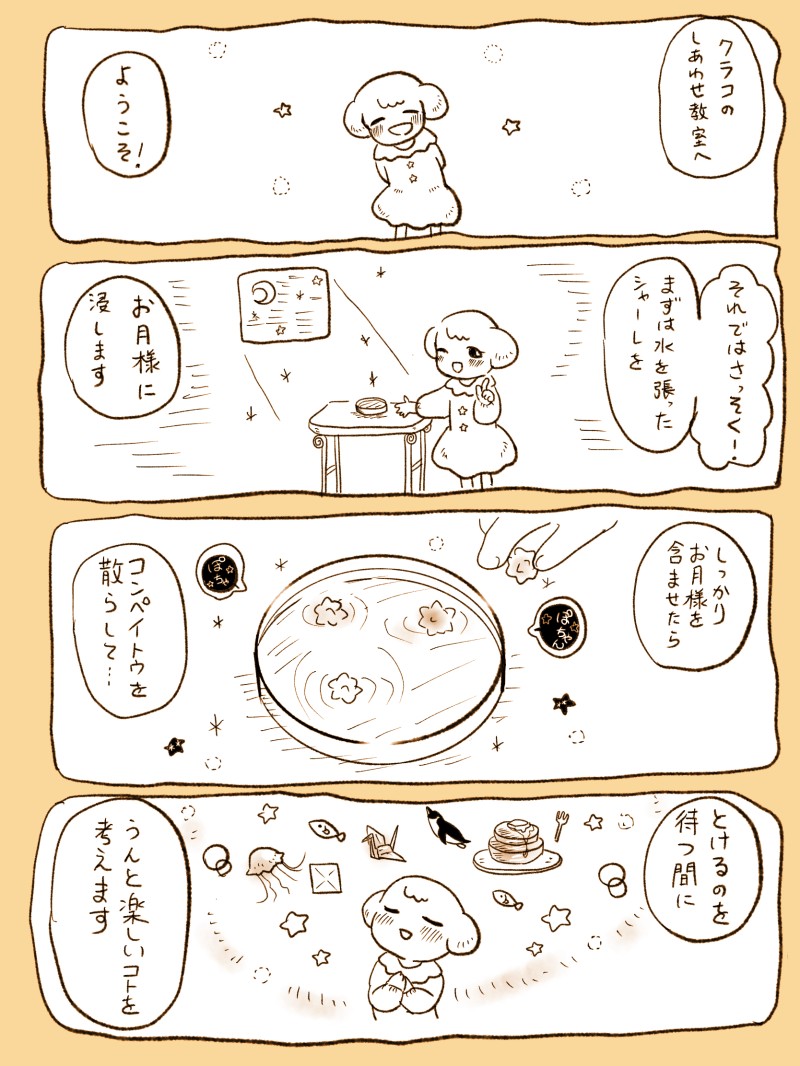 クラコの
しあわせ教室へ
ようこそ!
それではさっそく〜!
まずは水を張った
シャーレを
お月様に
浸します
しっかり
お月様を
含ませたら
ぽちゃん
ぽちゃ
コンペイトウを
散らして…
とけるのを
待つ間に
うんと楽しいコトを
考えます